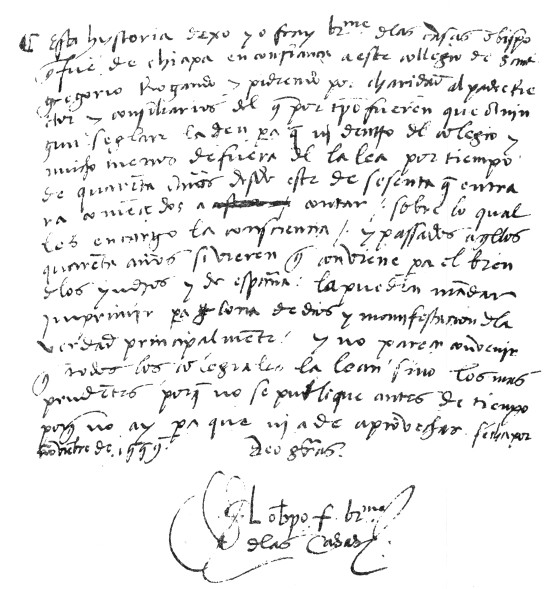 Esta hystoria dexo yo fray brme delas casas obispo
q fue de chiapa en confiança a este collegio de sant
gregorio Rogando y pidiendo por charidad al padre Re
ctor y consiliarios del q por tpo fueren que a nin
gun seglar la den pa q ni dentro del colegio y
mucho menos de fuera del la lea por tiempo
de quarenta años desde este de sesenta q entra
ra començados a contar; sobre lo qual
les encargo la consciencia; y passados aqllos
quarenta años si vieren q conviene pa el bien
dlos yndios y de españa; la pueden mandar
imprimir pa gloria de dios y manifestacion dla
verdad principalmente; y no parece convenir
q todos los colegiales la lean sino los mas
prudentes porq no se publique antes de tiempo
porq no ay pa que ni a de aprovechar fecha por
noviembre de 1559. Deo grãs.
El obpo f. brme
delas Casas